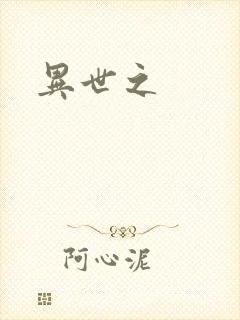 異世之
阿心泥